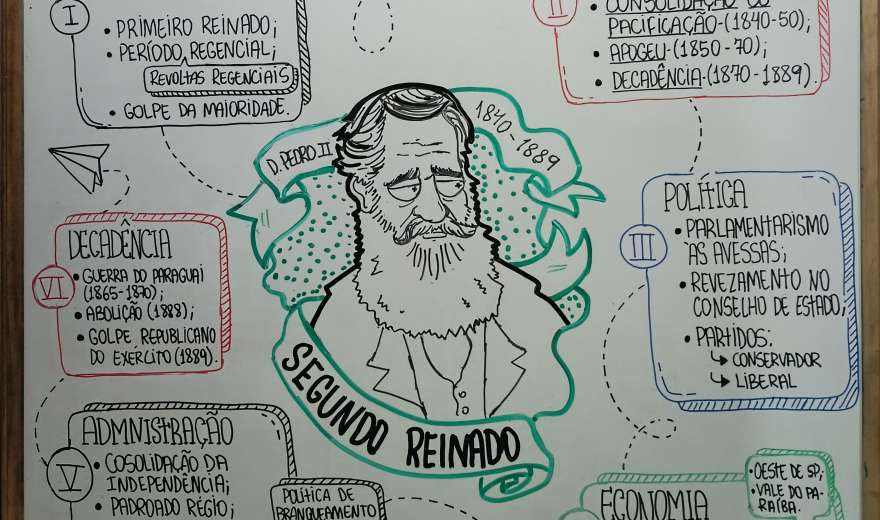 I
• PRIMEIRO REINADO;
• PERÍODO REGENCIAL;
REVOLTAS REGENCIAIS
• GOLPE DA MAIORIDADE.
II
• CONSOLIDAÇÃO OU
PACIFICAÇÃO-(1840-50);
• APOGEU-(1850-70);
• DECADÊNCIA-(1870-1889).
D. PEDRO II
1840-1889
SEGUNDO REINADO
III
POLÍTICA
• PARLAMENTARISMO
ÀS AVESSAS;
• REVEZAMENTO NO
CONSELHO DE ESTADO;
• PARTIDOS:
↳ CONSERVADOR
↳ LIBERAL
ECONOMIA
• OESTE DE SP;
• VALE DO PA-
RAÍBA.
V
ADMNISTRAÇÃO
• COSOLIDAÇÃO DA
INDEPENDÊNCIA;
• PADROADO RÉGIO;
POLÍTICA DE
BRANQUEAMENTO
VI
DECADÊNCIA
• GUERRA DO PARAGUAI
(1865-1870);
• ABOLIÇÃO (1888);
• GOLPE REPUBLICANO
DO EXÉRCITO (1889).